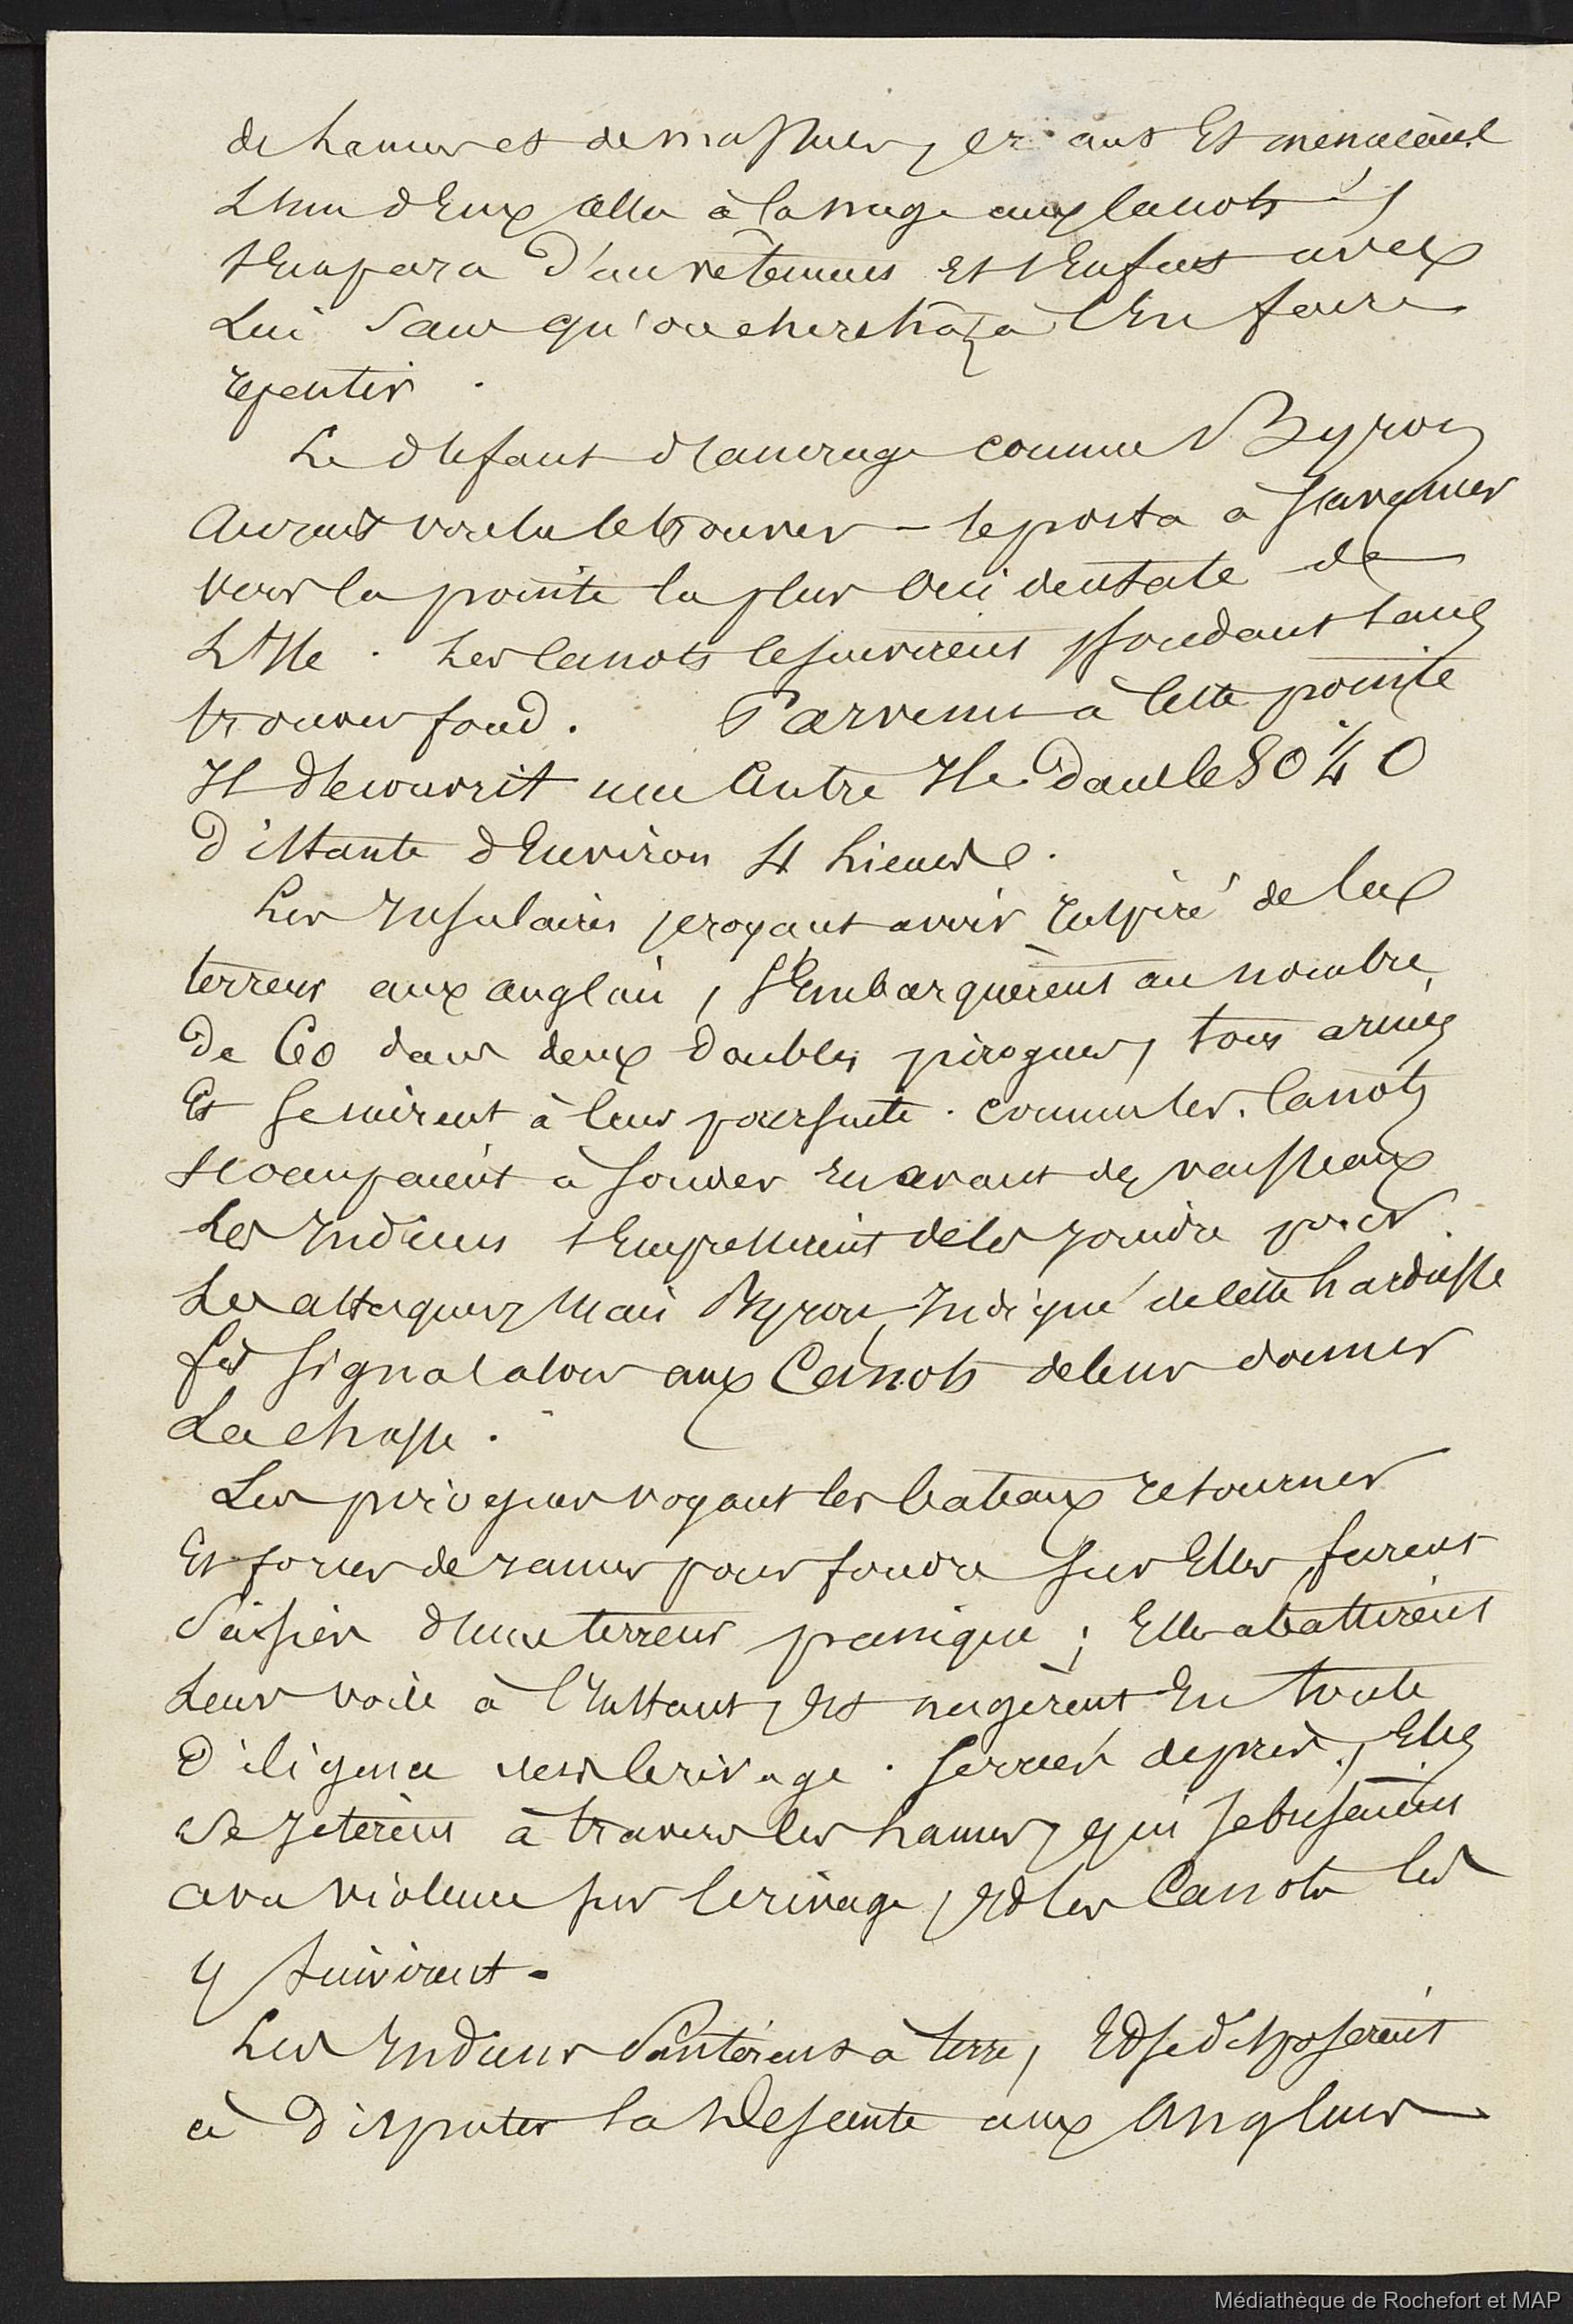 de lances et de massues, criant Et menaçant
L'un d'Eux alla à la nage aux canots
s'Empara d'un vêtement Et s'Enfuit avec
Lui sans qu'on cherchât à l'En faire
repentir.
Le défaut d'ancrage comme Byron
Aurait voulu le trouver – le porta à s'avancer
vers la pointe la plus occidentale de
L'Ile. Les canots le suivirent sondant sans
trouver fond. Parvenu à cette pointe
Il découvrit une Autre Ile dans le SO ¼ O
Distante d'Environ 4 Lieues.
Les Insulaires croyant avoir inspiré de la
terreur aux anglais, s'Embarquèrent au nombre
De 60 dans deux doubles pirogues, tous armés
Et se mirent à leur poursuite. comme les canots
s'occupaient à sonder En avant des vaisseaux
Les Indiens s'Empressèrent de les joindre pour
Les attaquer, Mais Byron, Indigné de cette hardiesse
fit signal alors aux Canots de leur donner
La chasse.
Les pirogues voyant les bateaux retourner
Et forcer de rames pour fondre sur Elles, furent
Saisies d'une terreur panique; Elles abattirent
Leur voile à l'Instant, Et nagèrent En toute
Diligence vers le rivage. Serrées de près, Elles
se jetèrent à travers les lames, qui se brisaient
avec violence sur le rivage, Et les Canots les
y suivirent.
Les Indiens Sautèrent à terre, Et se disposèrent
à Disputer la Descente aux Anglais